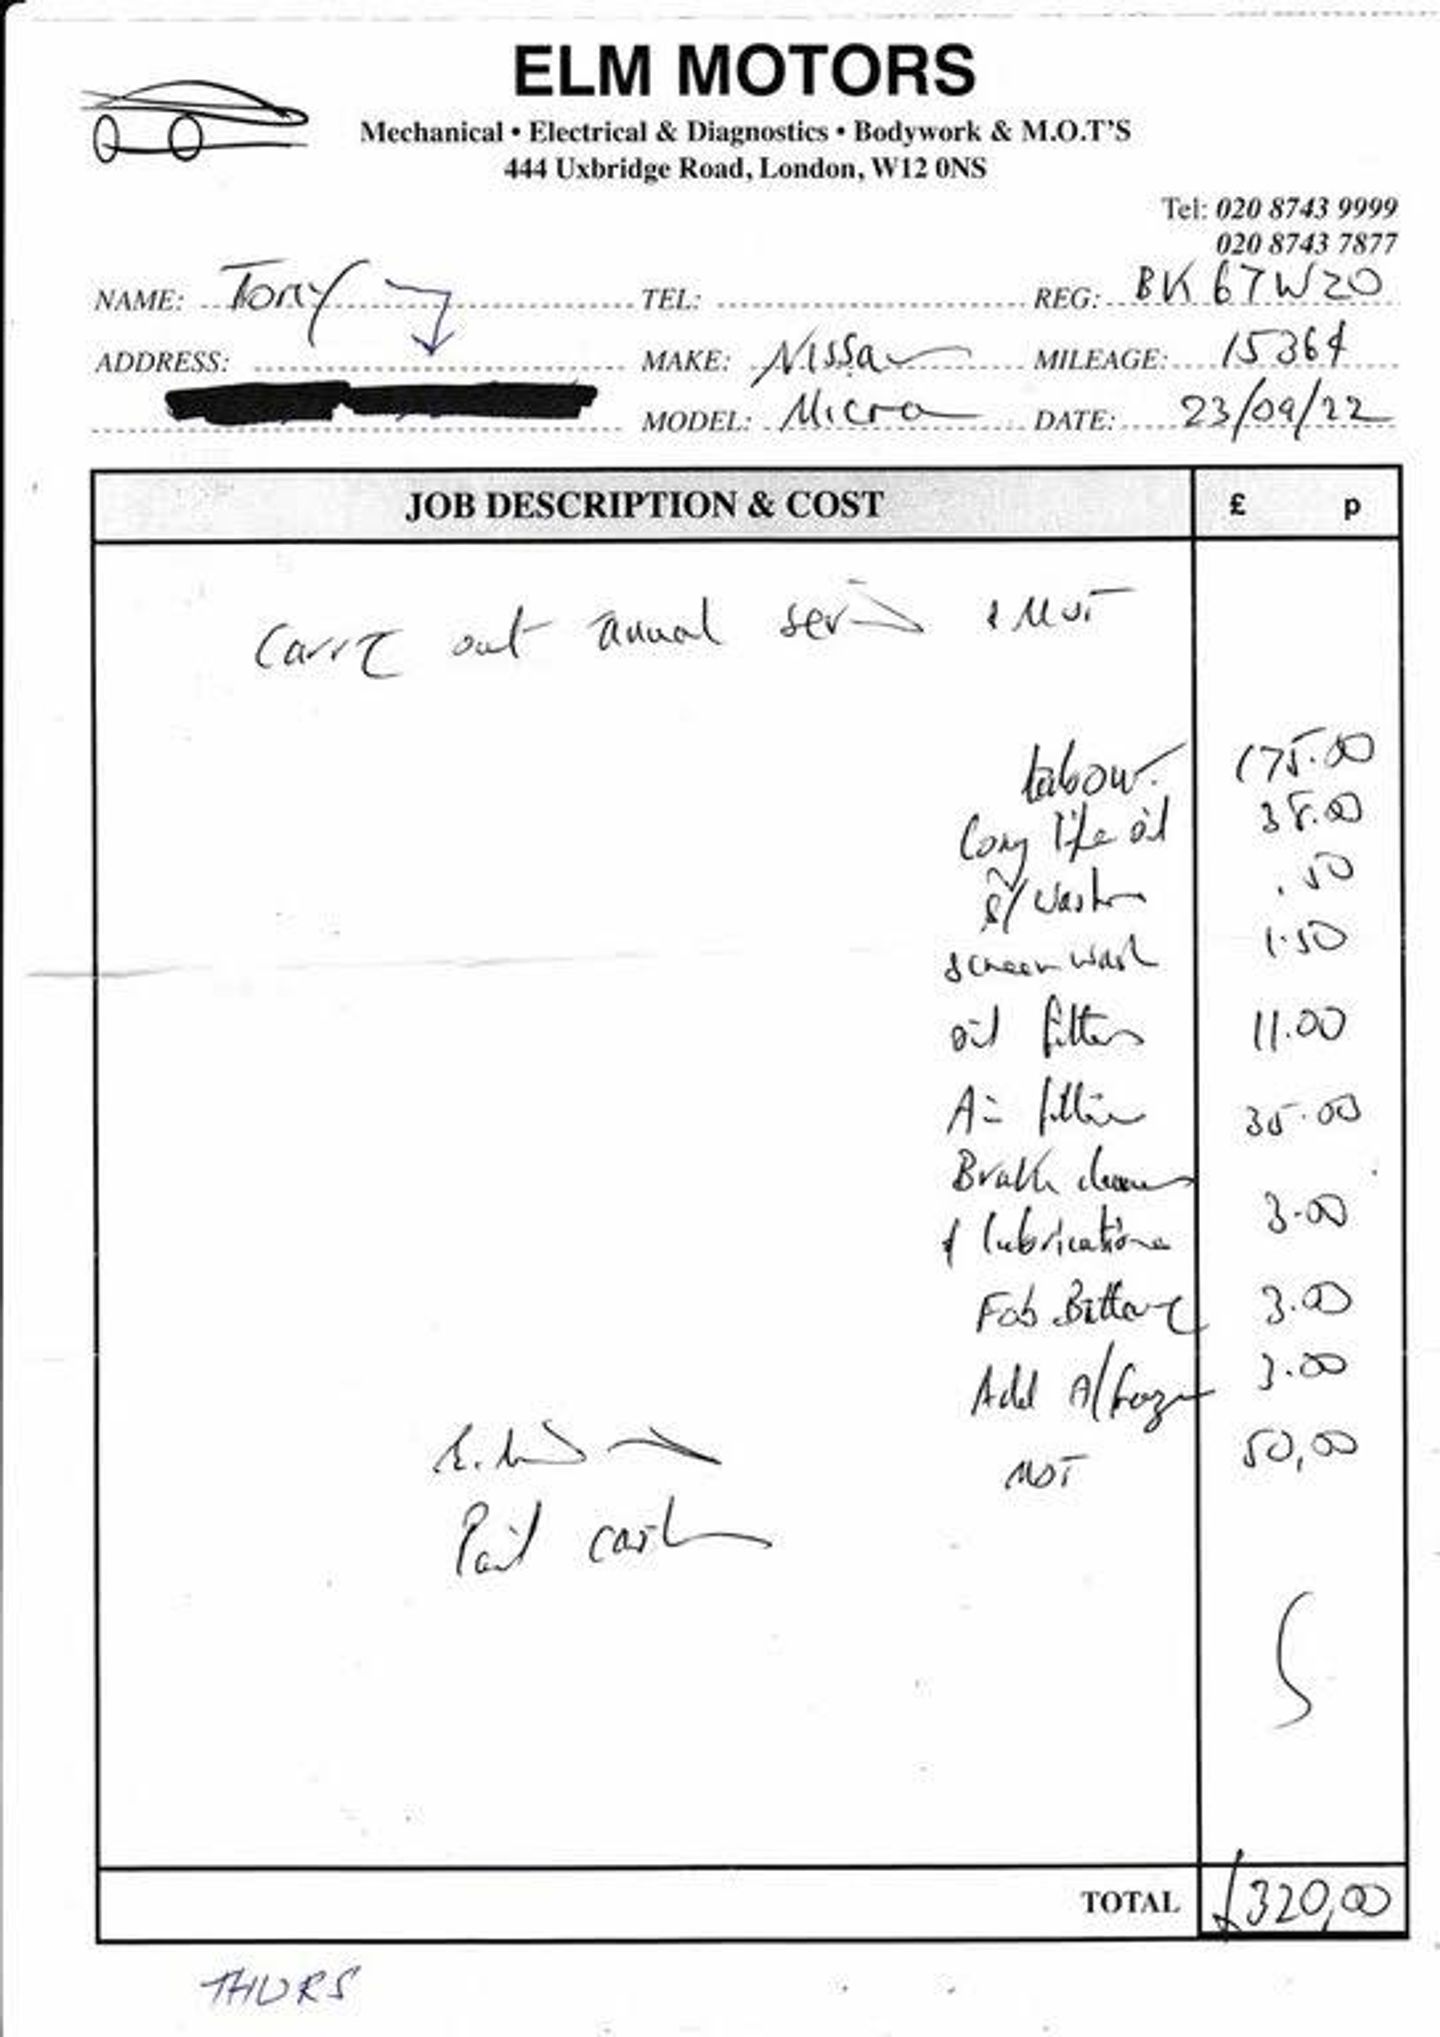 ELM MOTORS
Mechanical • Electrical & Diagnostics • Bodywork & M.O.T'S
444 Uxbridge Road, London, W12 0NS
Tel: 020 8743 9999
020 8743 7877
NAME: Tony TEL: REG: BK67WZO
ADDRESS: MAKE: Nissan MILEAGE: 15364
MODEL: Micra DATE: 23/09/22
JOB DESCRIPTION & COST £ p
Carry out anual & MOT
labour 175.00
Long life oil 38.00
S/Washer .50
screen wash 1.50
oil filters 11.00
Air filter 35.00
Brake cleaner
& lubrications 3.00
Fob Battery 3.00
Add A/freeze 3.00
MOT 50,00
Paid cash
TOTAL £320,00
THURS